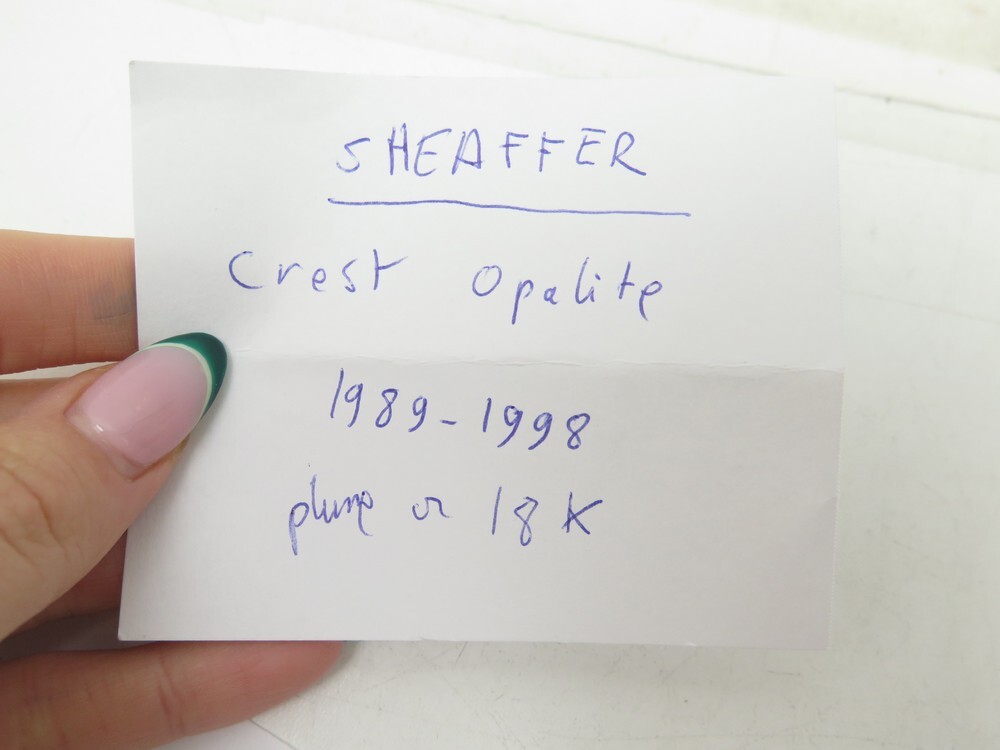 SHEAFFER
Crest Opalite
1989-1998
plume or 18K